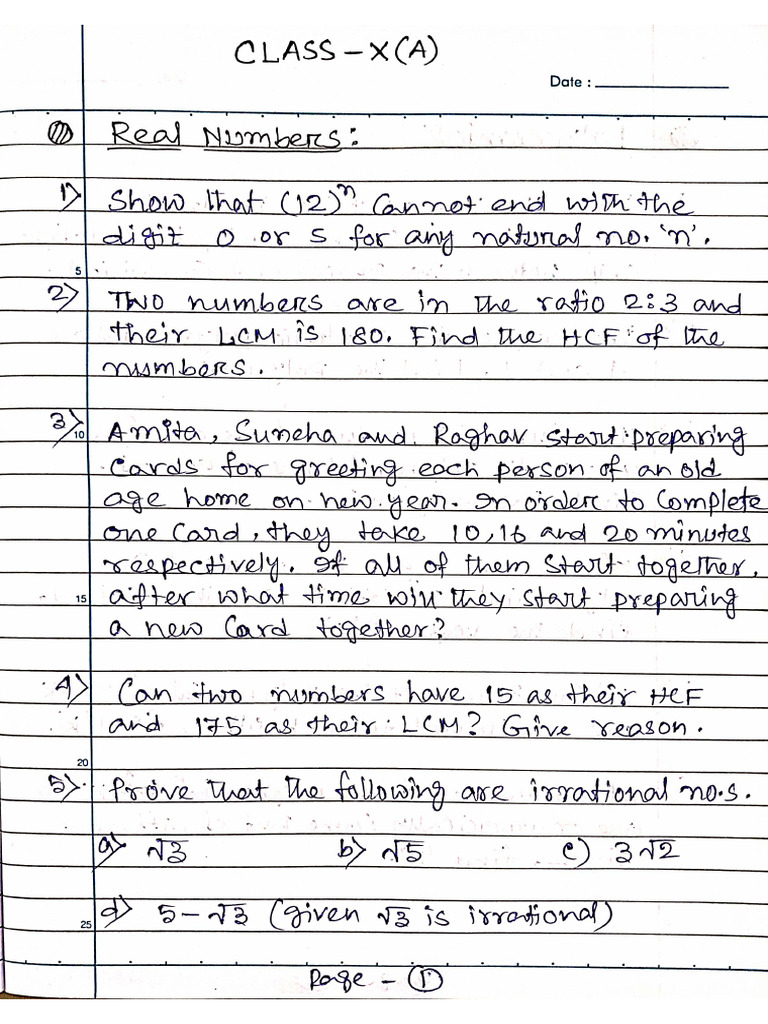 CLASS - X(A)
Date :
Real Numbers:
1) Show that (12)ⁿ Cannot end with the
digit 0 or 5 for any natural no. 'n'.
5
2) Two numbers are in the ratio 2:3 and
their LCM is 180. Find the HCF of the
numbers.
3) Amita, Suneha and Raghav start preparing
10
cards for greeting each person of an old
age home on new year. In order to complete
one card, they take 10, 16 and 20 minutes
respectively. If all of them start together,
15 after what time will they start preparing
a new card together?
4) Can two numbers have 15 as their HCF
and 175 as their LCM? Give reason.
20
5) Prove that the following are irrational no.s.
a) √3 b) √5 c) 3√2
25 d) 5-√3 (given √3 is irrational)
Page - 1